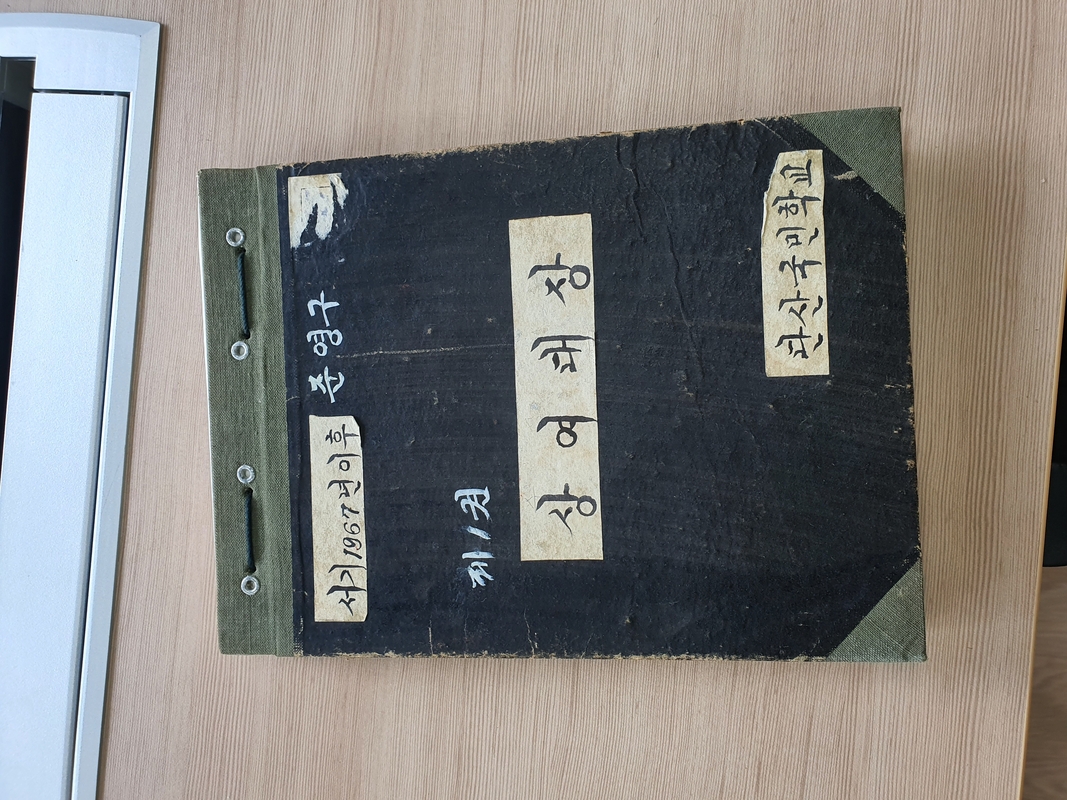 서기1967년이후 준영구
제1권
상여대장
관산국민학교